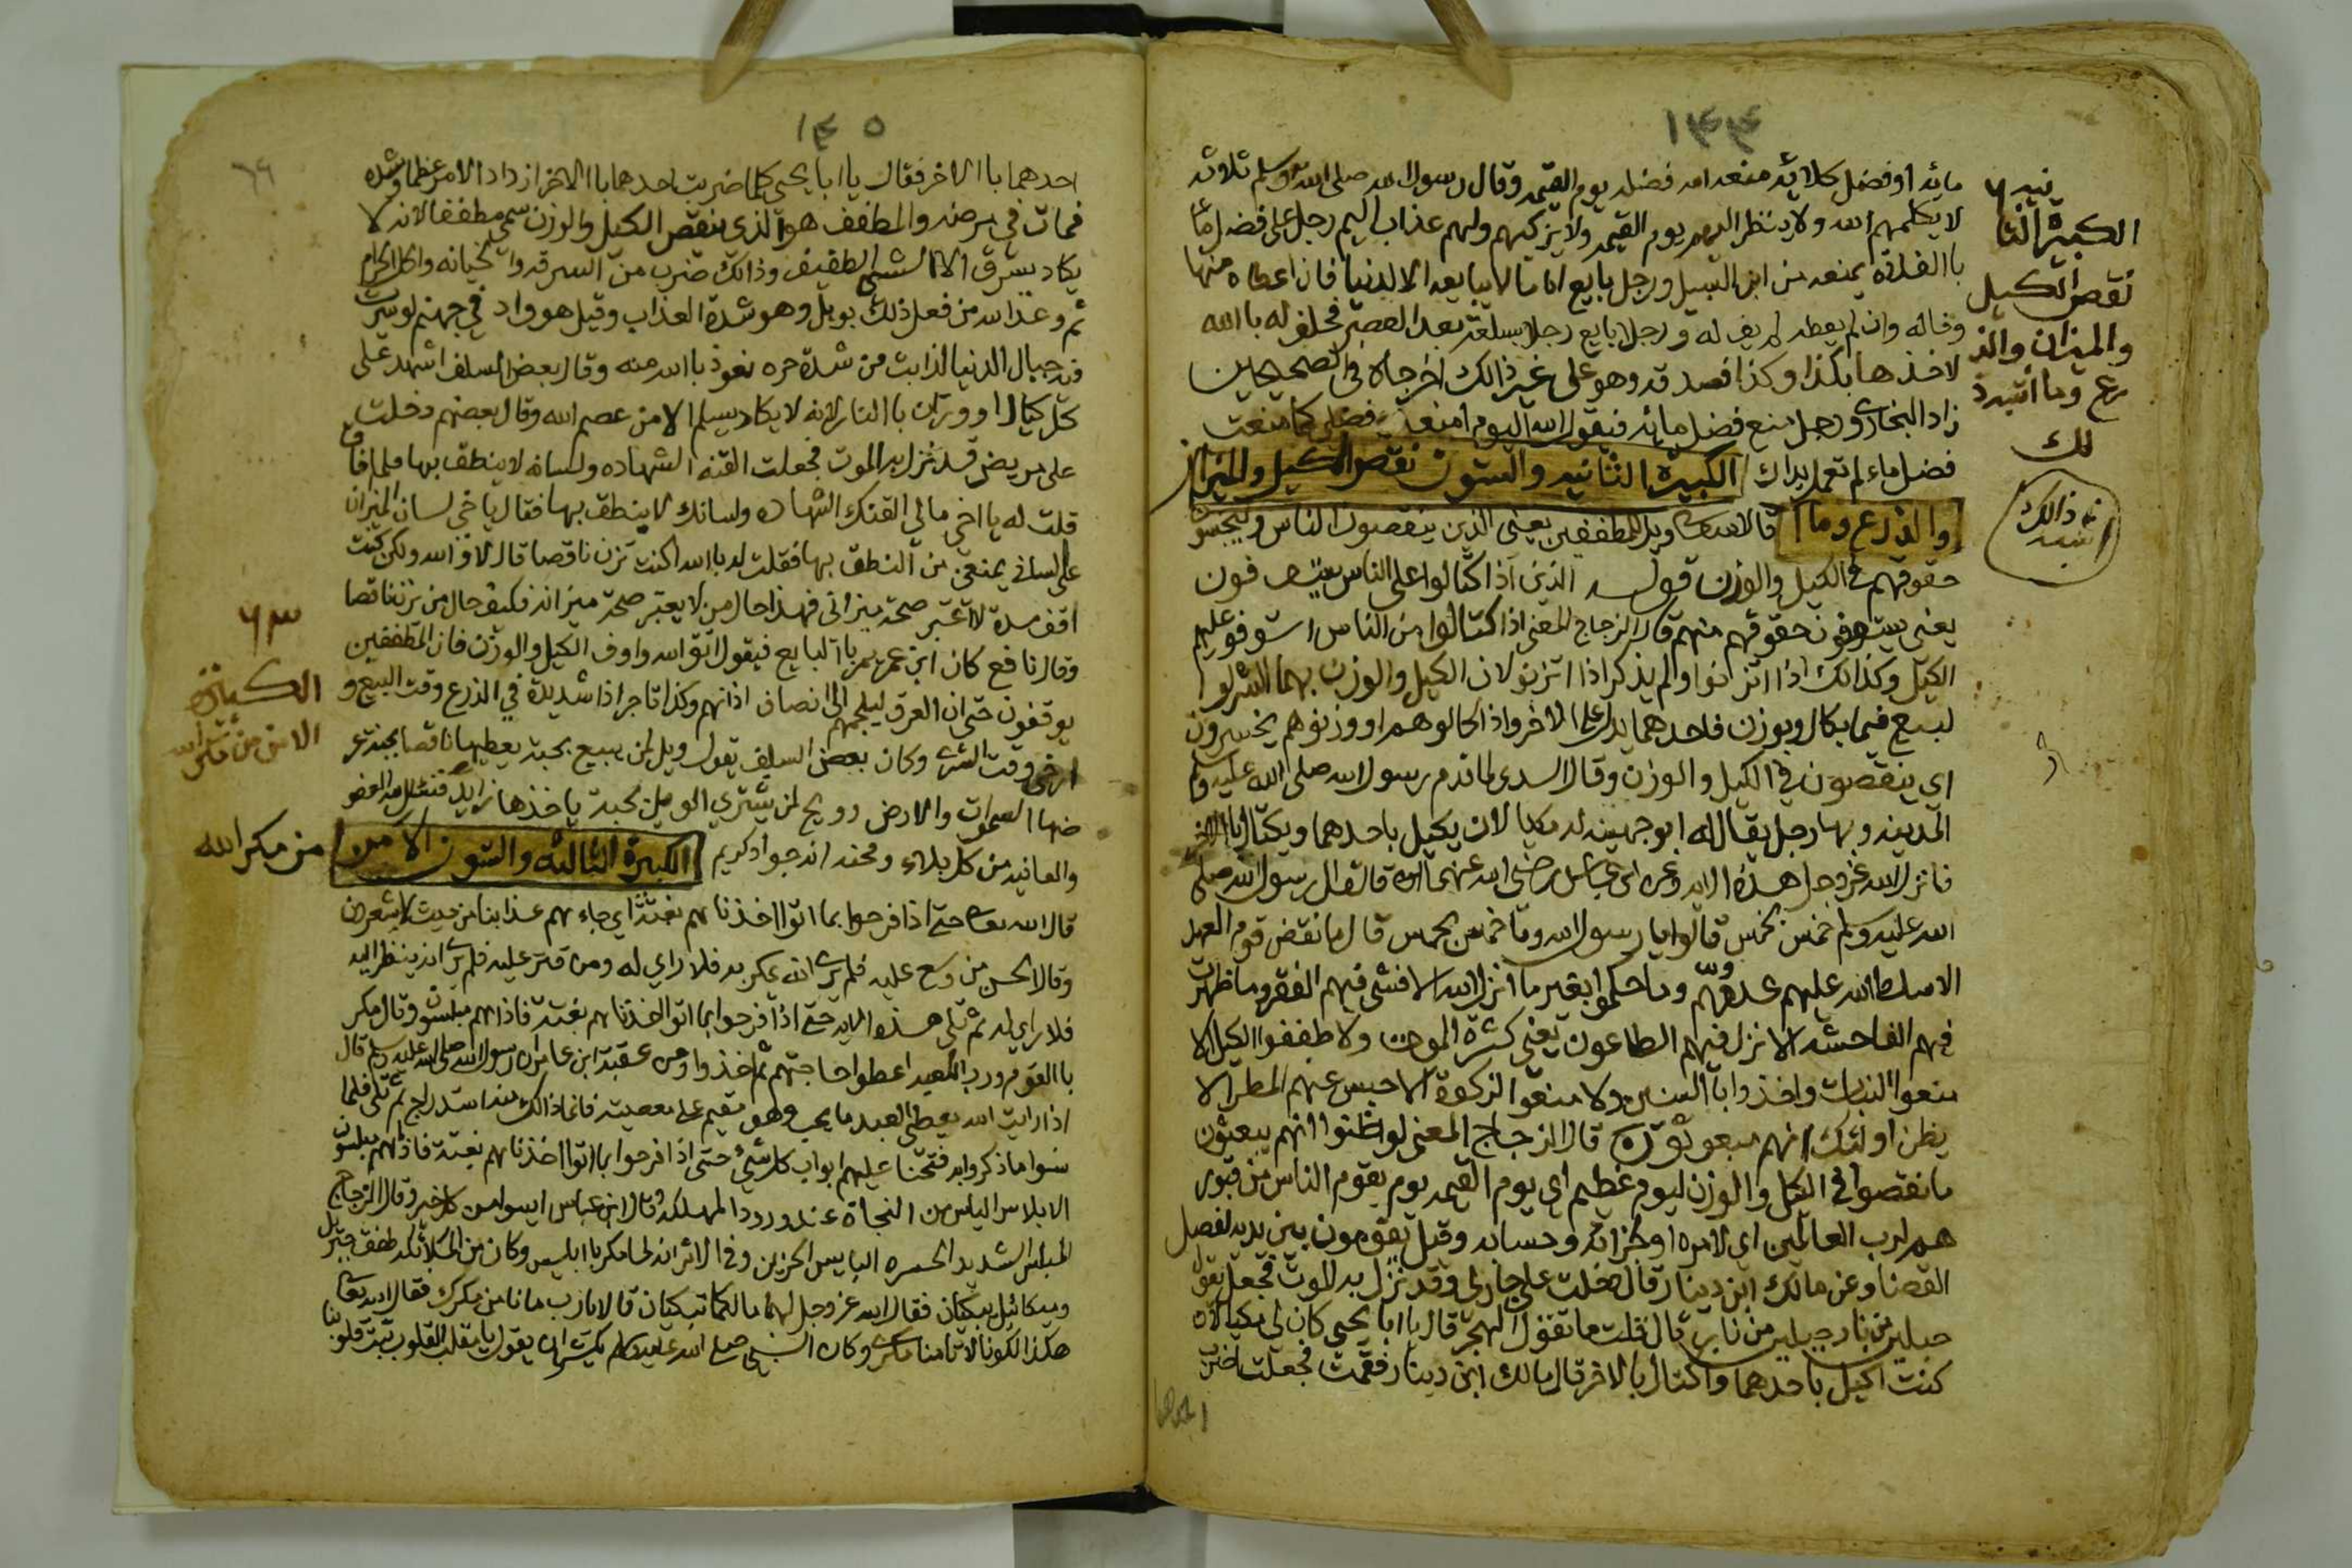 ١٤٤
مائه او فضل كلائه منعه الله فضله يوم القيمه وقال رسول الله صلى الله عليه وسلم ثلاثه
لا يكلمهم الله ولا ينظر اليهم يوم القيمه ولا يزكيهم ولهم عذاب اليم رجل على فضل ما
باالفلاة يمنعه من ابن السبيل ورجل بايع اماما لا يبايعه الا لدنيا فان اعطاه منها
وفاله وان لم يعطه لم يف له و رجلا بايع رجلا بسلعة بعد العصر فحلف له باالله
لاخذها بكذا وكذا فصدقه وهو على غير ذالك اخرجاه في الصحيحين
زاد البخاري ورجل منع فضل مائه فيقول الله اليوم امنعك فضلي كما منعت
فضل ماء لم تعمل يداك الكبيرة الثانيه والستون نقص الكيل والميزان
والذرع وما قال الله تعالى ويل للمطففين يعني الذين ينقصون الناس ويبخسون
حقوقهم في الكيل والوزن قوله الذين اذا كتالوا على الناس يستوفون
يعني يستوفون حقوقهم منهم قال الزجاج المعنى اذا كتالوا من الناس استوفو عليهم
الكيل وكذالك اذا اتزانوا ولم يذكر اذا اتزنو لان الكيل والوزن بهما الشرا وا
لبيع فيما يكال ويوزن فاحدهما يدل على الاخر واذا كالوهم او وزنوهم يخسرون
اي ينقصون في الكيل والوزن وقال السدى لما قدم رسول الله صلى الله عليه وسلم
المدينه وبها رجل يقال له ابو جهينه له مكيالان يكيل باحدهما ويكتال باالاخر
فانزل الله عز وجل هذه الايه وعن ابن عباس رضي الله عنهما انه قال قال رسول الله صلى
الله عليه وسلم خمس بخمس قالوا يا رسول الله وما خمس بخمس قال ما نقض قوم العهد
الا سلط الله عليهم عدوهم وما حكموا بغير ما انزل الله الا فشى فيهم الفقر وما ظهرت
فيهم الفاحشه الا نزل فيهم الطاعون يعني كثرة الموت ولا طففوا الكيل الا
منعوا النبات واخذوا باالسنين ولا منعوا الزكوة الا حبس عنهم المطر الا
يظن اولئك انهم مبعوثون قال الزجاج المعنى لو ظنوا انهم يبعثون
ما نقصوا في الكيل والوزن ليوم عظيم اي يوم القيمه يوم يقوم الناس من قبورهم
لرب العالمين اي لامره اولجزائه وحسابه وقيل يقومون بين يديه لفصل
القضا وعن مالك ابن دينار قال دخلت على جار لي وقد نزل به الموت فجعل يقول
جبلين من نار جبلين من نار قال قلت ما تقول اتهجر قال يا ابا يحيى كان لي مكيالان
كنت اكيل باحدهما واكتال بالاخر قال مالك ابن دينار فقمت فجعلت اضرب
احدهما
الكبيرة الثا
نيه
نقص الكيل
والميزان والذ
رع وما اشبه ذ
لك
ذالك
اشبه
١٤٥
٦٩
احدهما باالاخر فقال يا ابا يحيى كلما ضربت احدهما باالاخر ازداد الامر عظما وشده
فمات في مرضه والمطفف هو الذي ينقص الكيل والوزن سمي مطففا لانه لا
يكاد يسرق الا الشئ الطفيف وذالك ضرب من السرقه والخيانه واكل الحرام
ثم وعد الله من فعل ذلك بويل وهو شدة العذاب وقيل هو واد في جهنم لو سيرت
فيه جبال الدنيا لذابت من شدة حره نعوذ باالله منه وقال بعض السلف اشهد على
كل كيال او وزان باالنار لانه لا يكاد يسلم الا من عصم الله وقال بعضهم دخلت
على مريض قد نزل به الموت فجعلت القنه الشهاده ولسانه لا ينطق بها فلما افاق
قلت له يا اخي مالي القنك الشهاده ولسانك لا ينطق بها فقال يا خي لسان الميزان
على لساني يمنعني من النطق بها فقلت له باالله اكنت تزن ناقصا قال لا والله ولكن كنت
اقف مدة لا اعتبر صحة ميزاني فهذا حال من لا يعتبر صحة ميزانه فكيف حال من يزن ناقصا
وقال نافع كان ابن عمر يمر باالبايع فيقول اتق الله واوف الكيل والوزن فان المطففين
يوقفون حتى ان العرق ليلجمهم الى انصاف اذانهم وكذا تاجر اذا شد يده في الذرع وقت البيع و
ارخى وقت الشرى وكان بعض السلف يقول ويل لمن يبيع بحبة يعطيها ناقصا بجنة عر
ضها السموات والارض وويح لمن يشتري الويل بحبة ياخذها زايد فنسئل الله العفو
والعافيه من كل بلاء ومحنه انه جواد كريم الكبيرة الثالثه والستون الامن من مكر الله
قال الله تعالى حتى اذا فرحوا بما اتوا اخذناهم بغتة اي جاءهم عذابنا من حيث لا يشعرون
وقال الحسن من وسع عليه فلم يرى انه يمكر به فلا راي له ومن قتر عليه فلم يرى انه ينظر اليه
فلا راي له ثم تلى هذه الايه حتى اذا فرحوا بما اتوا اخذناهم بغتة فاذا هم مبلسون وقال مكر
باالقوم ورب الكعبه اعطوا حاجتهم ثم اخذوا وعن عقبة ابن عامر ان رسول الله صلى الله عليه وسلم قال
اذا رايت الله يعطي العبد ما يحب وهو مقيم على معصيته فانما ذالك منه استدراج ثم تلى فلما
نسوا ما ذكروا به فتحنا عليهم ابواب كل شئ حتى اذا فرحوا بما اتوا اخذناهم بغتة فاذاهم مبلسون
الابلاس الياس من النجاة عند ورود المهلكه وقال ابن عباس ايسوا من كل خير وقال الزجاج
المبلس الشديد الحسره اليايس الحزين وفي الاثر انه لما مكر باابليس وكان من الملائكه طفق جبريل
وميكائيل يبكيان فقال الله عز وجل لهما مالكما تبكيان قالا يا رب ما نامن مكرك فقال الله تعالى
هكذا كونا لا تامنا مكري وكان النبي صلى الله عليه وسلم يكثر ان يقول يا مقلب القلوب ثبت قلوبنا
٦٣
الكبيرة
الامن من مكر الله